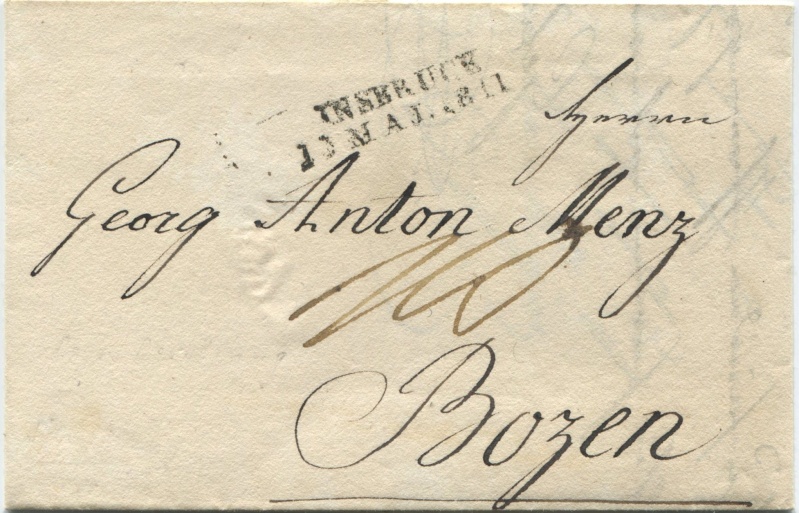 INSBRUCK
13 MAI. 1841
Herrn
Georg Anton Menz
Bozen